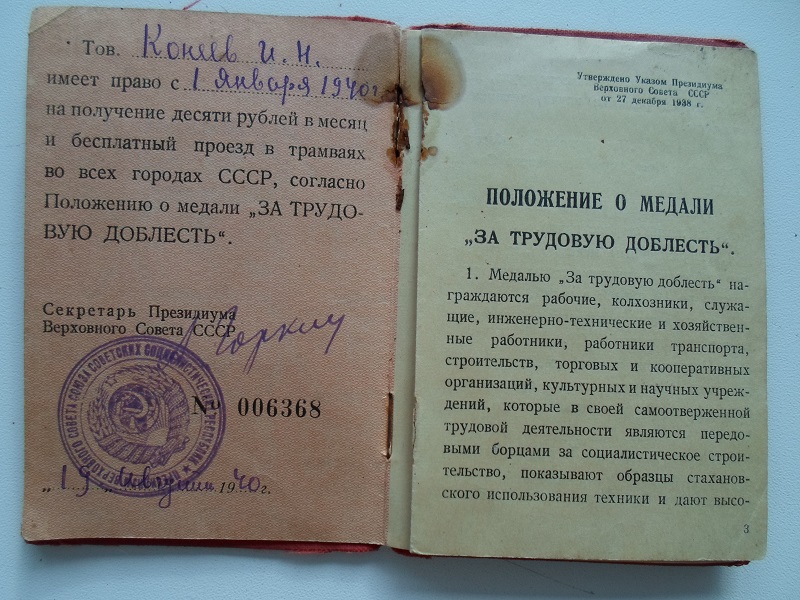 Тов. Конев И. Н.
имеет право с 1 Января 1940 г.
на получение десяти рублей в месяц
и бесплатный проезд в трамваях
во всех городах СССР, согласно
Положению о медали „ЗА ТРУДО-
ВУЮ ДОБЛЕСТЬ“.
Секретарь Президиума
Верховного Совета СССР
№ 006368
„19 1940 г.
Утверждено Указом Президиума
Верховного Совета СССР
от 27 декабря 1938 г.
ПОЛОЖЕНИЕ О МЕДАЛИ
„ЗА ТРУДОВУЮ ДОБЛЕСТЬ“.
1. Медалью „За трудовую доблесть“ на-
граждаются рабочие, колхозники, служа-
щие, инженерно-технические и хозяйствен-
ные работники, работники транспорта,
строительств, торговых и кооперативных
организаций, культурных и научных учреж-
дений, которые в своей самоотверженной
трудовой деятельности являются передо-
выми борцами за социалистическое строи-
тельство, показывают образцы стаханов-
ского использования техники и дают высо-
3